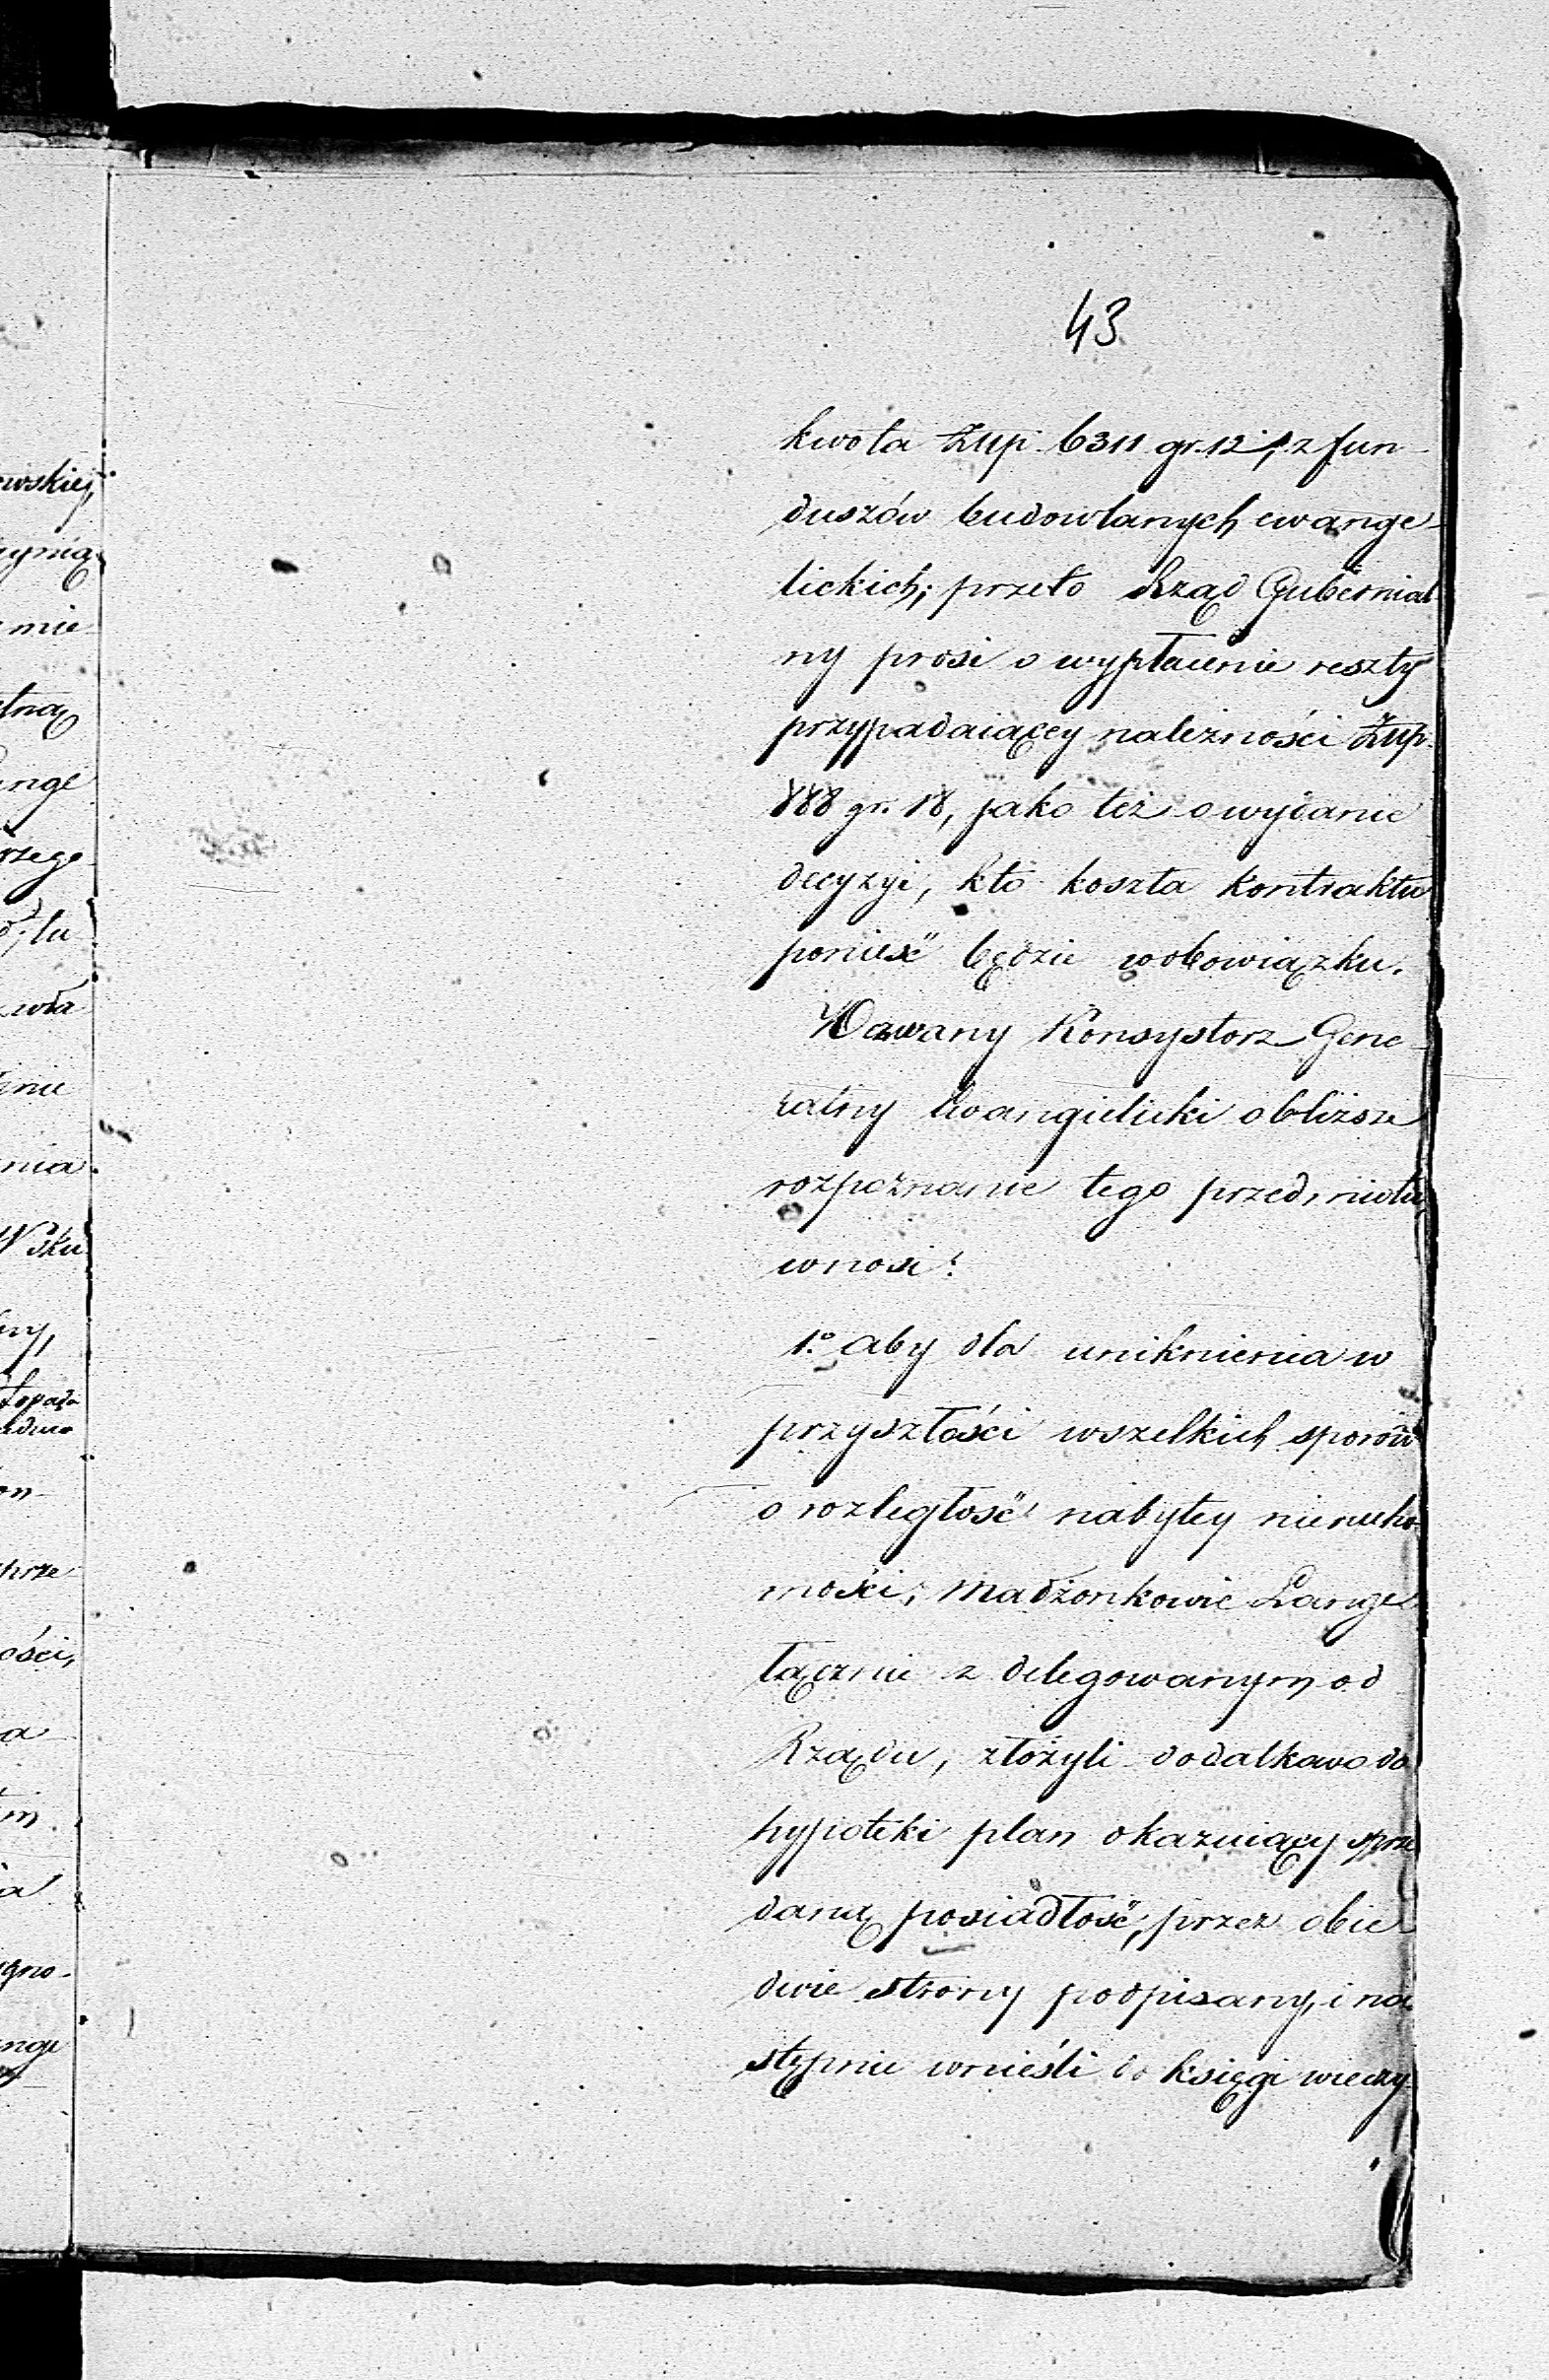 43
kwota Złłp. 6311 gr. 12, z fun-
duszów budowlanych ewange-
lickich; przeto Rząd Gubernial
ny prosi o wypłacenie reszty
przypadaiącey należności Złłp.
888 gr. 18, jako też o wydanie
decyzyi, kto koszta kontraktu
ponieść będzie w obowiązku.
Wezwany Konsystorz Gene-
ralny Ewangielicki o bliższe
rozpoznanie tego przedmiotu,
wnosi:
1.o aby dla uniknienia w
przyszłości wszelkich sporów
o rozległość nabytey nierucho-
mości, Małżonkowie Lange
łącznie z delegowanym od
Rządu, złożyli dodatkowo do
hypoteki plan okazuiący sprze
daną posiadłość, przez obie
dwie strony podpisany, i na
stępnie wnieśli do księgi wieczy